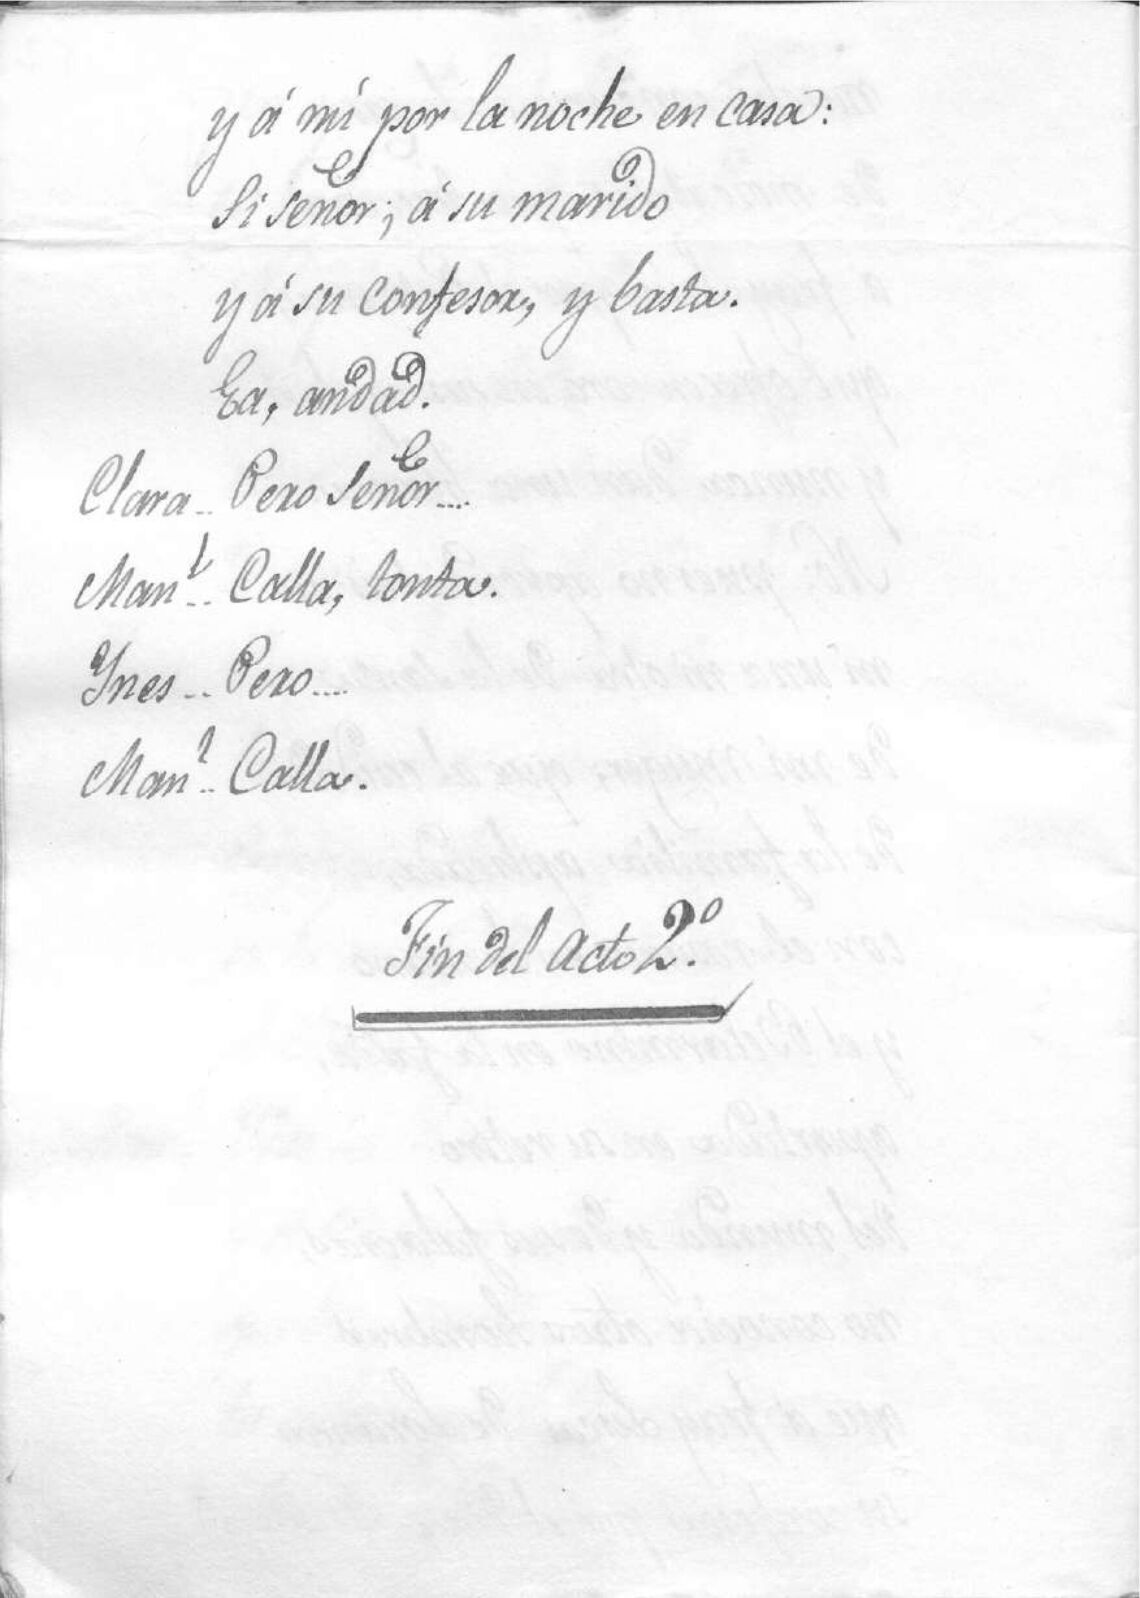 y á mí por la noche en casa:
Si señor; á su marido
y á su confesor, y basta.
Ea, andad.
Clara.. Pero señor....
Man.l.. Calla, tonta.
Ynes... Pero....
Man.l.. Calla.
Fin del Acto 2.º